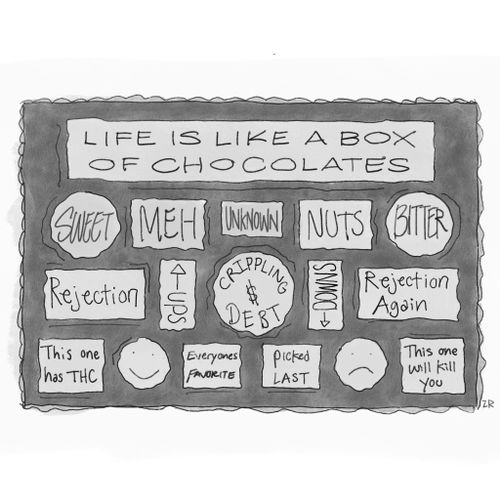 LIFE IS LIKE A BOX
OF CHOCOLATES
SWEET
MEH
UNKNOWN
NUTS
BITTER
Rejection
↑ UPS
CRIPPLING
$
DEBT
DOWNS →
Rejection
Again
This one
has THC
Everyones
FAVORITE
Picked
LAST
This one
will kill
you
ZR